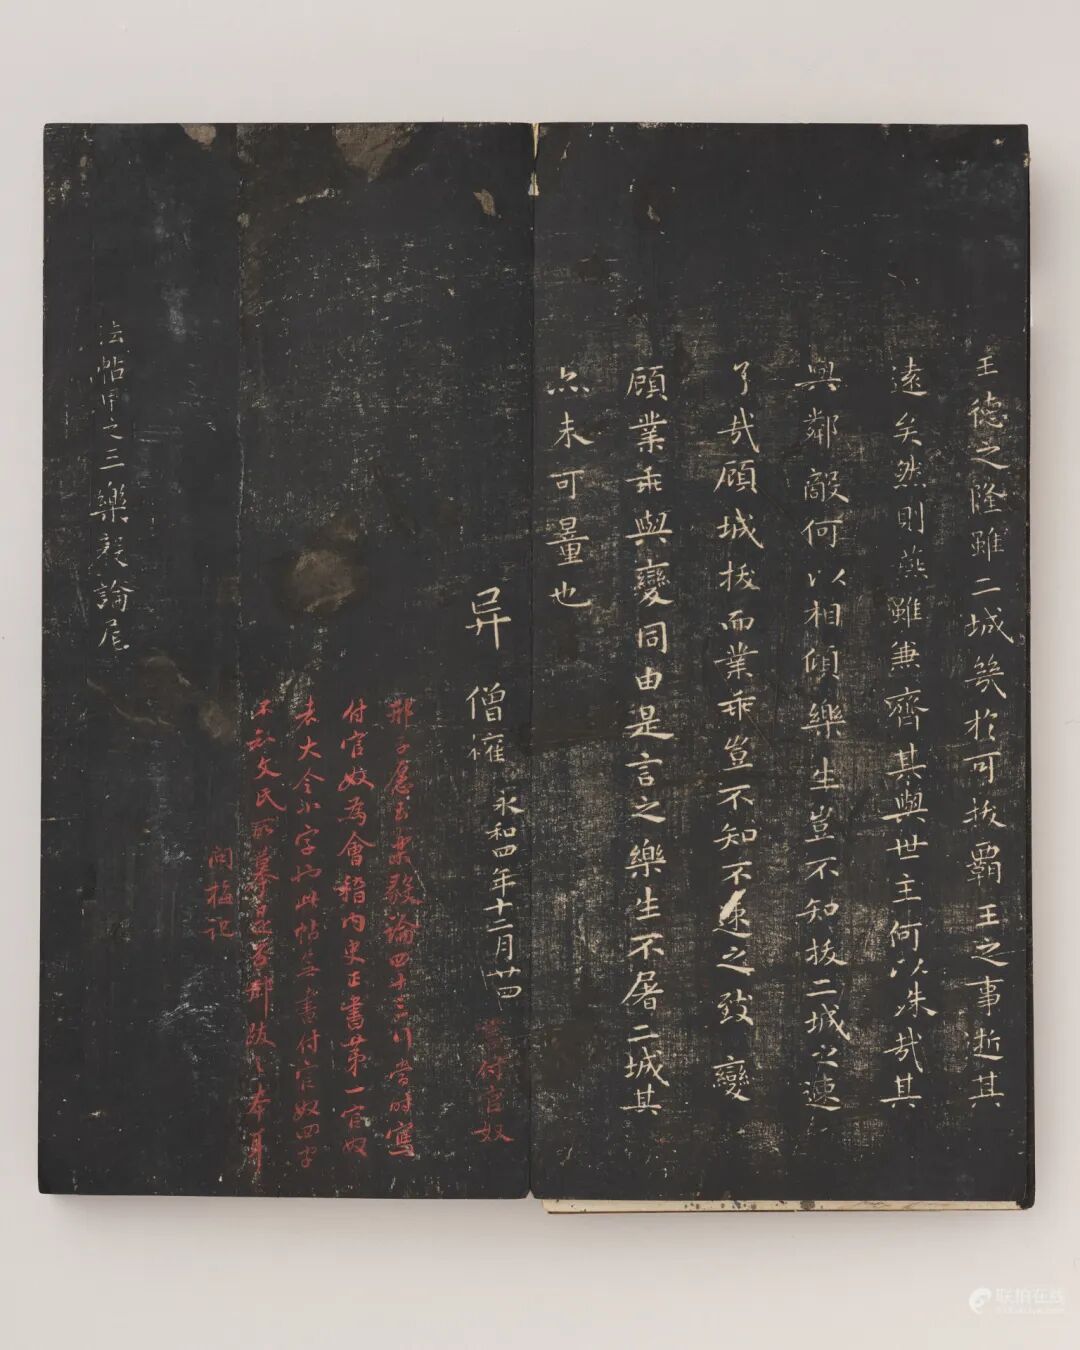 王德之隆雖二城幾於可拔霸王之事逝其
遠矣然則燕雖兼齊其與世主何以殊哉其
與鄰敵何以相傾樂生豈不知拔二城之速
了哉顧城拔而業乖豈不知不速之致變
顧業乖與變同由是言之樂生不屠二城其
亦未可量也
异 僧權
永和四年十二月廿四
書付官奴
邢子愿云樂毅論四十三行當時寫
付官奴為會稽內史正書第一官奴
大令小字也此帖無書付官奴四字
文民所摹是
問梅記
法帖甲之三 樂毅論尾
联拍在线